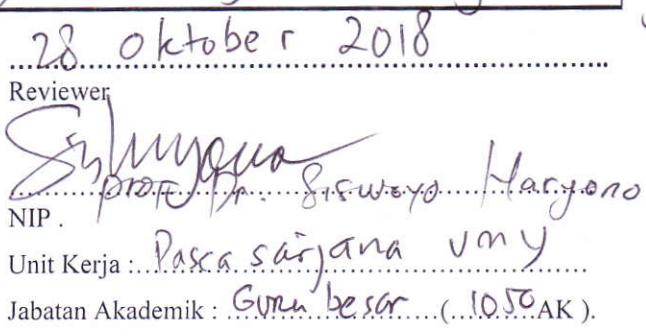 28 Oktober 2018
Reviewer
Prof. Dr. Siswoyo Haryono
NIP .
Unit Kerja : Pasca sarjana UMY
Jabatan Akademik : Guru besar (1050 AK ).